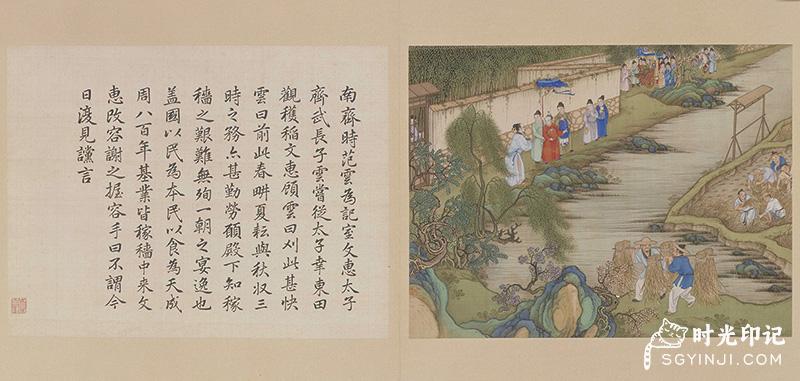 南齊時范雲為記室文惠太子
齊武長子雲嘗從太子幸東田
觀穫稲文惠顧雲曰刈此甚快
雲曰前此春畊夏耘與秋収三
時之務亦甚勤勞願殿下知稼
穡之艱難無殉一朝之宴逸也
盖國以民為本民以食為天成
周八百年基業皆稼穡中來文
惠改容謝之握容手曰不謂今
日復見讜言
时光印记
SGYINJI.COM